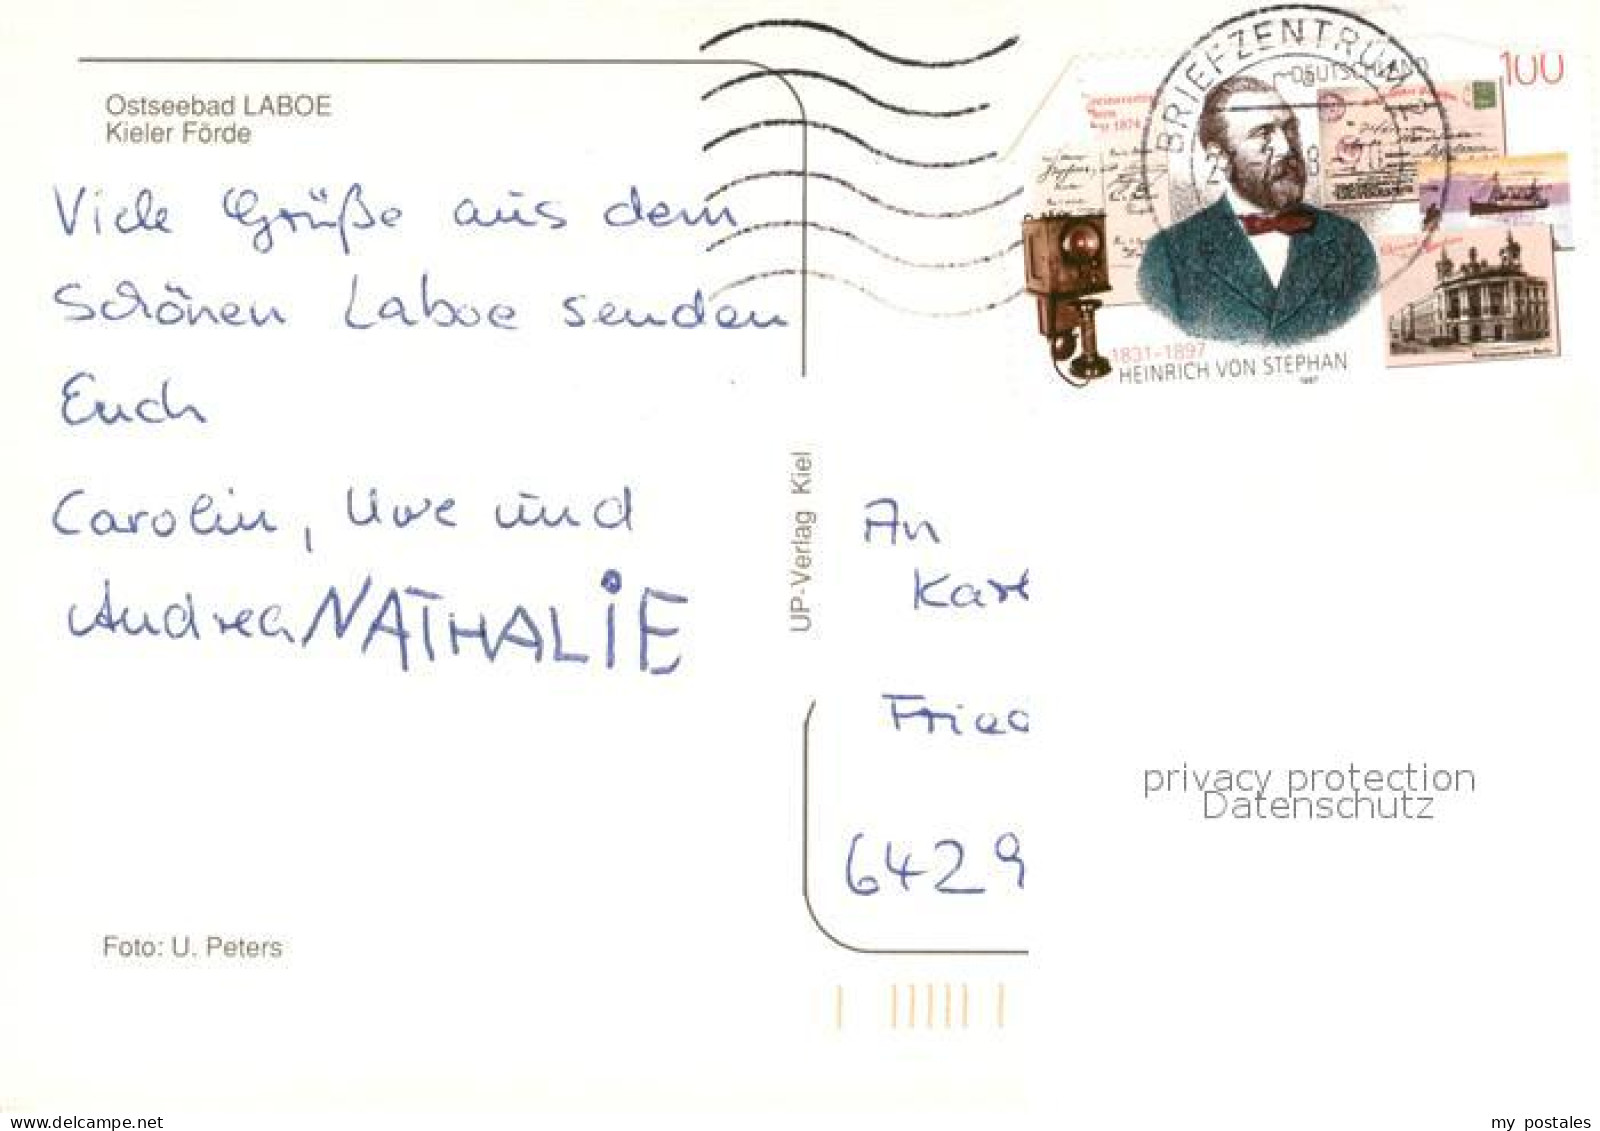 Ostseebad LABOE
Kieler Förde
Viele Grüße aus dem
Schönen Laboe senden
Euch
Carolin, Uwe und
Andrea NATHALiE
Foto: U. Peters
UP-Verlag Kiel
BRIEFZENTRUM
DEUTSCHLAND
100
1831-1897
HEINRICH VON STEPHAN
1997
An
Kar
Fried
6429
privacy protection
Datenschutz
www.delcampe.net
my_postales